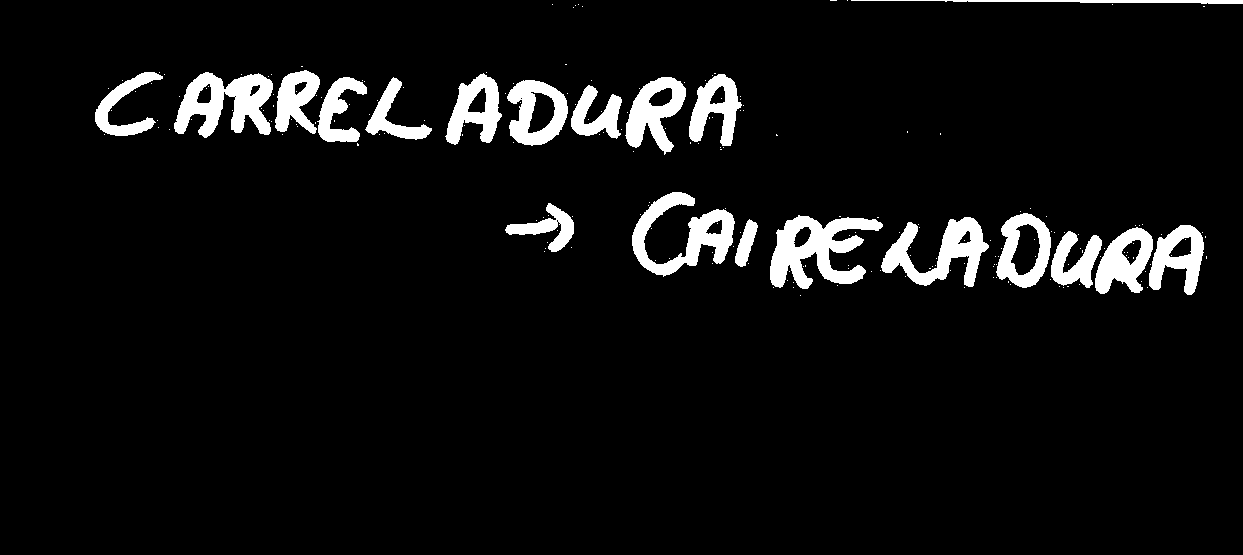 CARRELADURA
→ CAIRELADURA